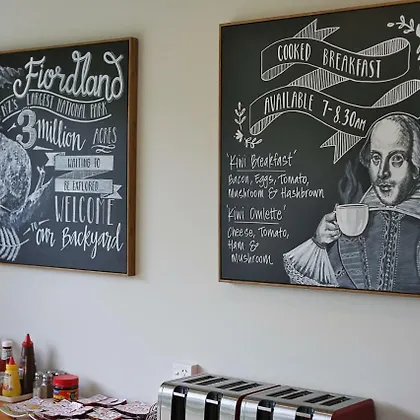 Fiordland
NZ'S LARGEST NATIONAL PARK
3 million ACRES
WAITING TO
BE EXPLORED
WELCOME
"our Backyard
COOKED BREAKFAST
AVAILABLE 7-8.30AM
'Kiwi Breakfast'
Bacon, Eggs, Tomato,
Mushroom & Hashbrown
'Kiwi Omlette'
Cheese, Tomato,
Ham &
Mushroom